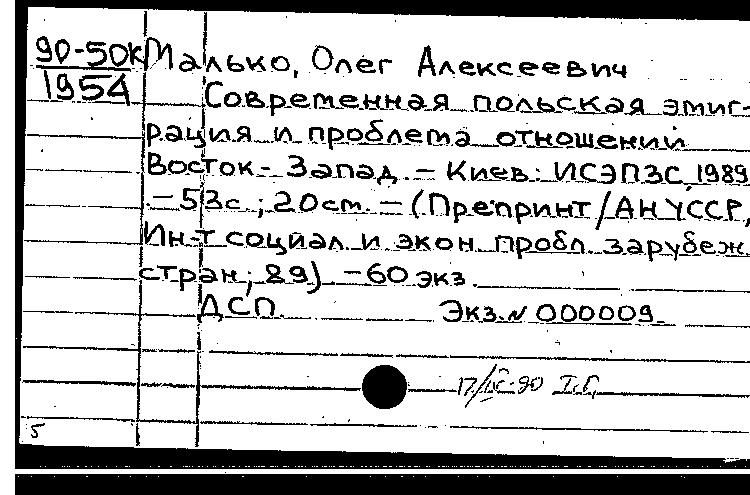 90-50К Малько, Олег Алексеевич
1954
Современная польская эмиг-
рация и проблема отношений
Восток - Запад. - Киев: ИСЭПЗС, 1989
- 53с.; 20см. - (Препринт / АН УССР,
Ин-т социал. и экон. пробл. зарубеж.
стран; 89) - 60 экз.
ДСП. Экз. № 000009
17/IX-90
5